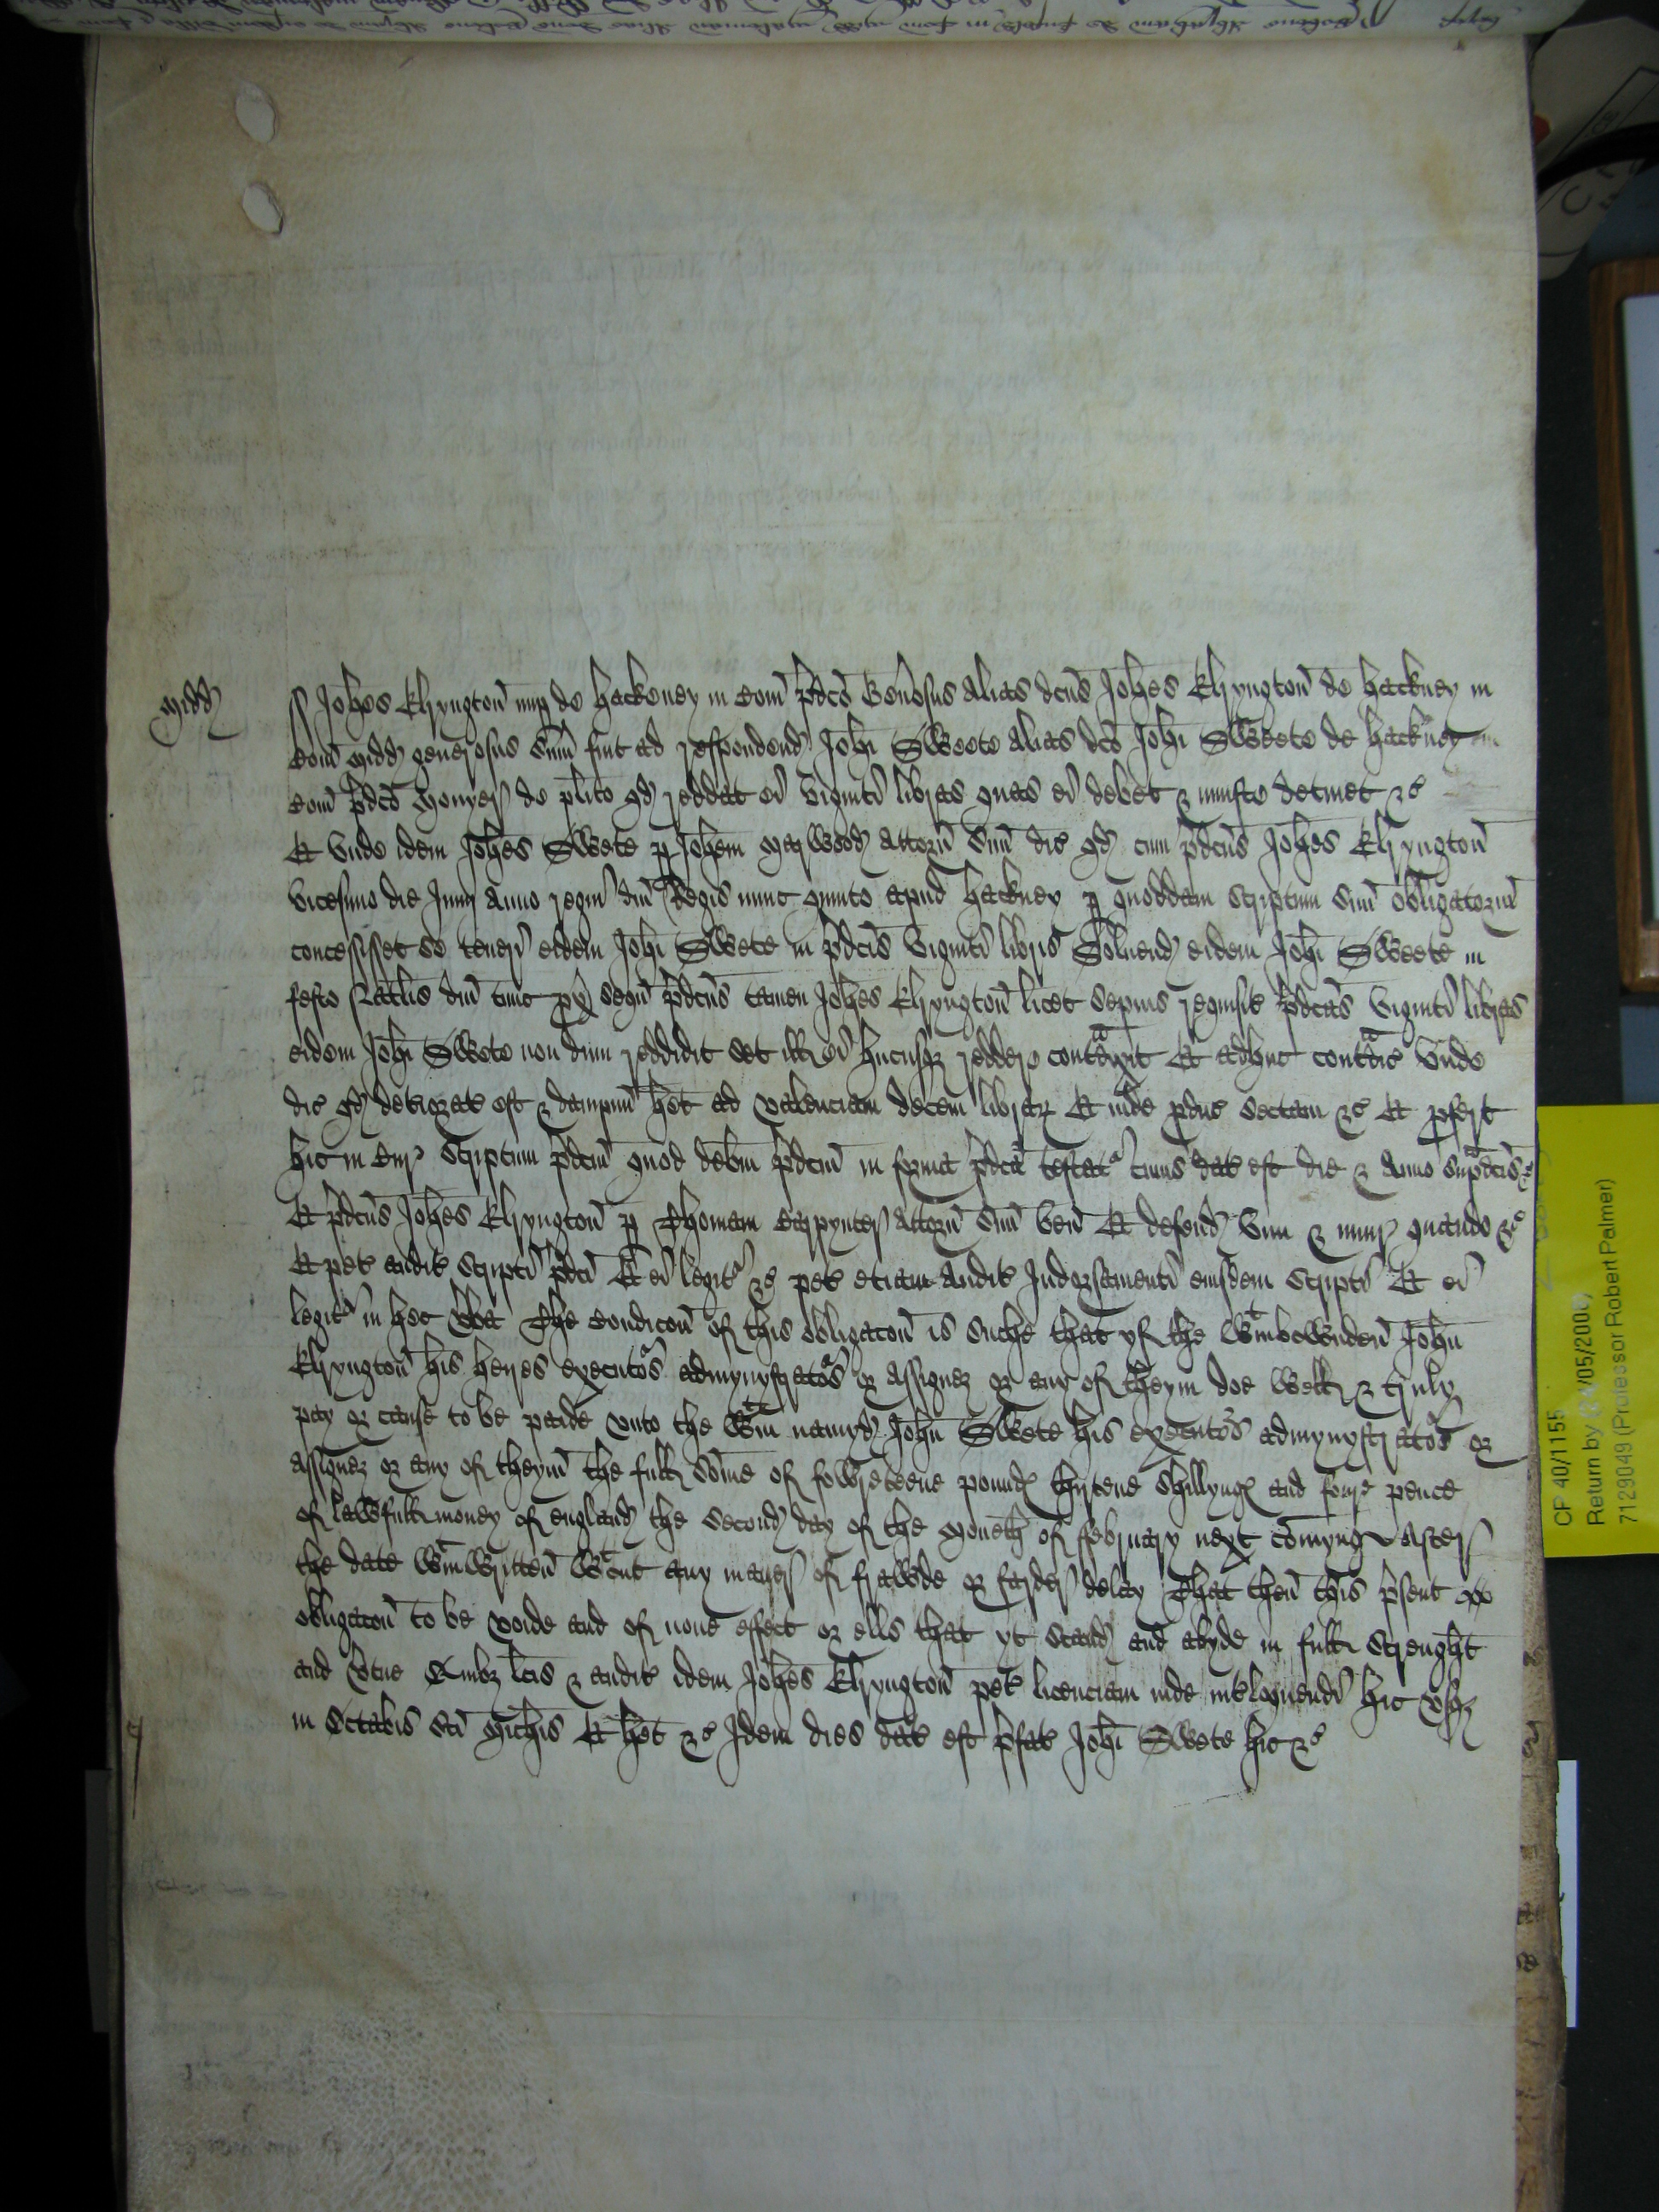 Midd
Joħes Elryngton nup de hackeney in Com p̄dco Gen̄osus alias dcus Joħes Elryngton de hackney in
Com Midd generosus sum fuit ad respondend Joħi Sweete alias dco Joħi Sweete de hackney in
Com p̄dco de plito qd reddat ei viginti libras quas ei debet & iniuste detinet &c
Et unde idem Joħes Swete p Joħem attorn suu dic qd cum p̄dcus Joħes Elryngton
vicesimo die Junij Anno regni dni Regis nunc quinto apud hackney p quoddam scriptum suu obligatoriu
concessisset se teneri eidem Joħi Swete in p̄dcis viginti libris soluend eidem Joħi Sweete in
festo Natlis dni tunc px sequn p̄dcus tamen Joħes Elryngton licet sepius requisit p̄dcas viginti libras
eidem Joħi Swete non dum reddidit set ill ei hucusq reddere contradixit Et adhuc contradic vnde
dic qd deteriorat est & dampnu het ad valenciam decem librar Et inde pduc sectam &c Et pfert
hic in Cur scriptum p̄dcm quod debm p̄dcm in forma p̄dca testatr cuius dat est die & anno sup̄dcis &c
Et p̄dcus Joħes Elryngton p Thomam Carpynter attorn suu ven Et defend vim & iniur quando &c
Et pet audit scripti p̄dci Et ei legitr &c pet etiam audit Indorsamenti eiusdem scripti Et ei
legitr in hec vba The Condicon of this obligacon is suche that yf the wtinbowndeñ Joħn
Elryngton his heyres executors admynystrators or assignez or any of theym doe well & truly
pay or cause to be paide vnto the wtin namyd Joħn Swete his executors admynystrators or
assignez or any of theym the full some of fowreteene pound thyrtene shillyng and foure pence
of lawfull money of england the second day of the moneth of february next comyng after
the date wtinwritten wtout any maner of frawde or farder delay That then this p̄sent
obligacon to be voide and of none effect or ells that yt stand and abyde in full strenght
and vtue Quibz lcis & audit idem Joħes Elryngton pet licenciam inde intloquendi hic vsqz
in Octabis sci Micħis Et het &c Idem dies dat est p̄fat Joħi Swete hic &c
CP 40/1155
Return by (24/05/2006)
7129049 (Professor Robert Palmer)